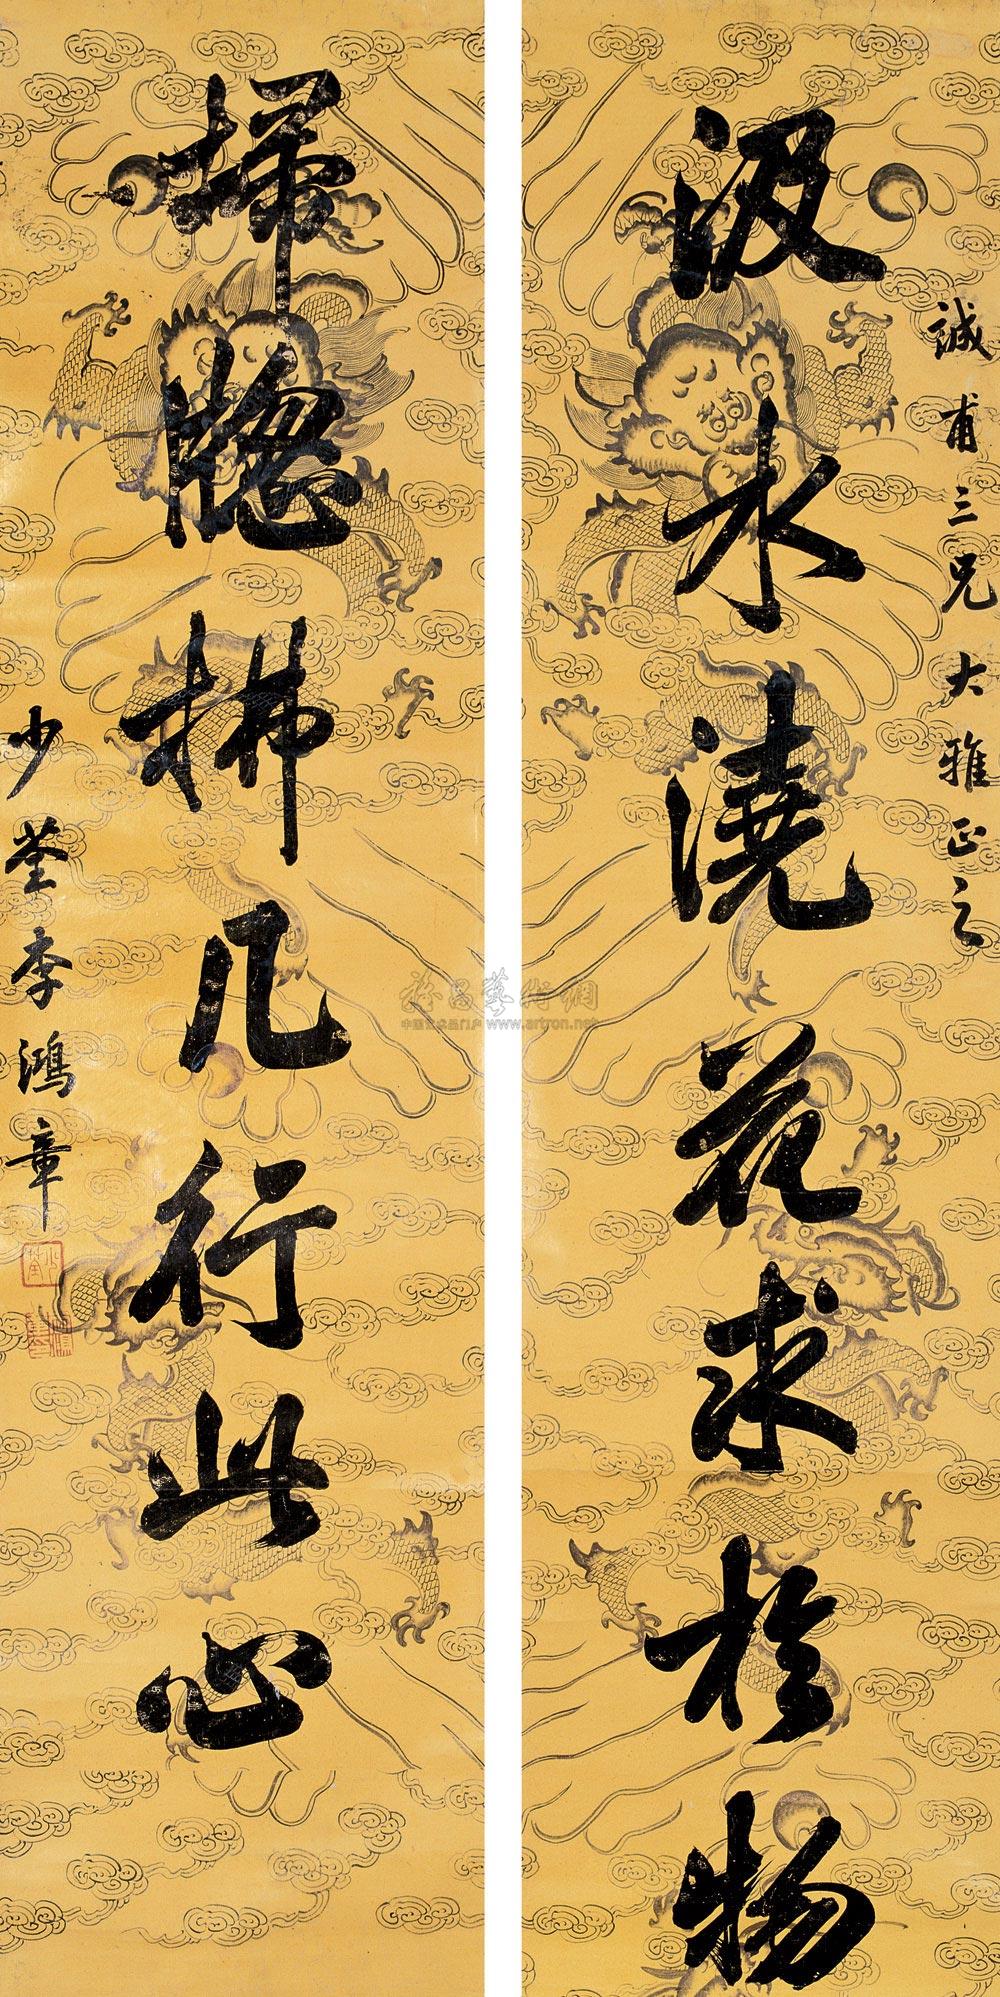 誠甫三兄大雅正之
汲水澆花求於物
掃牕拂几行此心
少荃李鴻章
少荃
雅昌藝術網
中国艺术品门户 www.artron.net